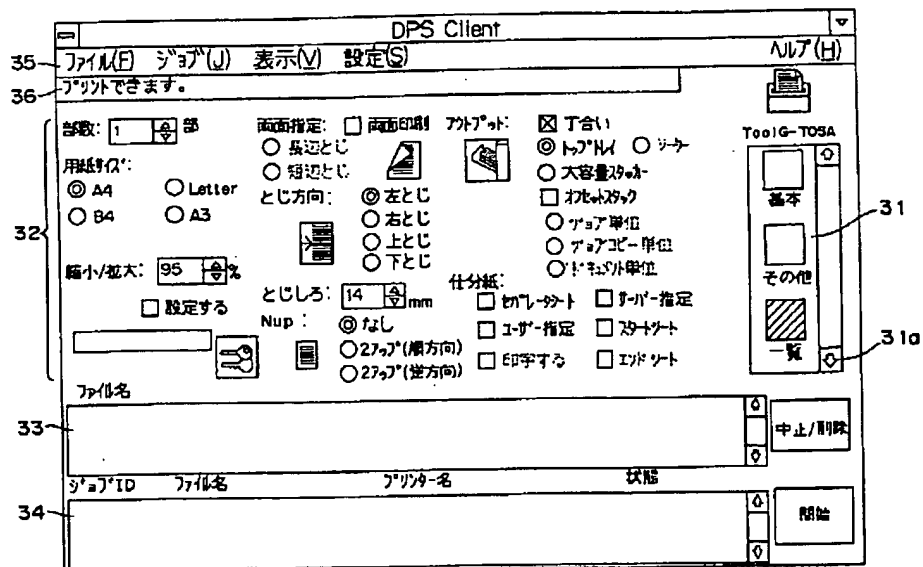 DPS Client
35 ファイル(F) ジョブ(J) 表示(V) 設定(S) ヘルプ(H)
36 プリントできます。
32
部数: 1 部
用紙サイズ:
A4 Letter
B4 A3
縮小/拡大: 95 %
設定する
両面指定: 両面印刷
長辺とじ
短辺とじ
とじ方向: 左とじ
右とじ
上とじ
下とじ
とじしろ: 14 mm
Nup: なし
2アップ(順方向)
2アップ(逆方向)
アウトプット: 丁合い
トップトレイ ソーター
大容量スタッカー
オフセットスタック
ジョブ単位
ジョブコピー単位
ドキュメント単位
仕分紙:
セパレータシート サーバー指定
ユーザー指定 スタートシート
印字する エンドシート
ToolG-TOSA
基本
31
その他
一覧
31a
ファイル名
33
中止/削除
ジョブID ファイル名 プリンター名 状態
34
開始